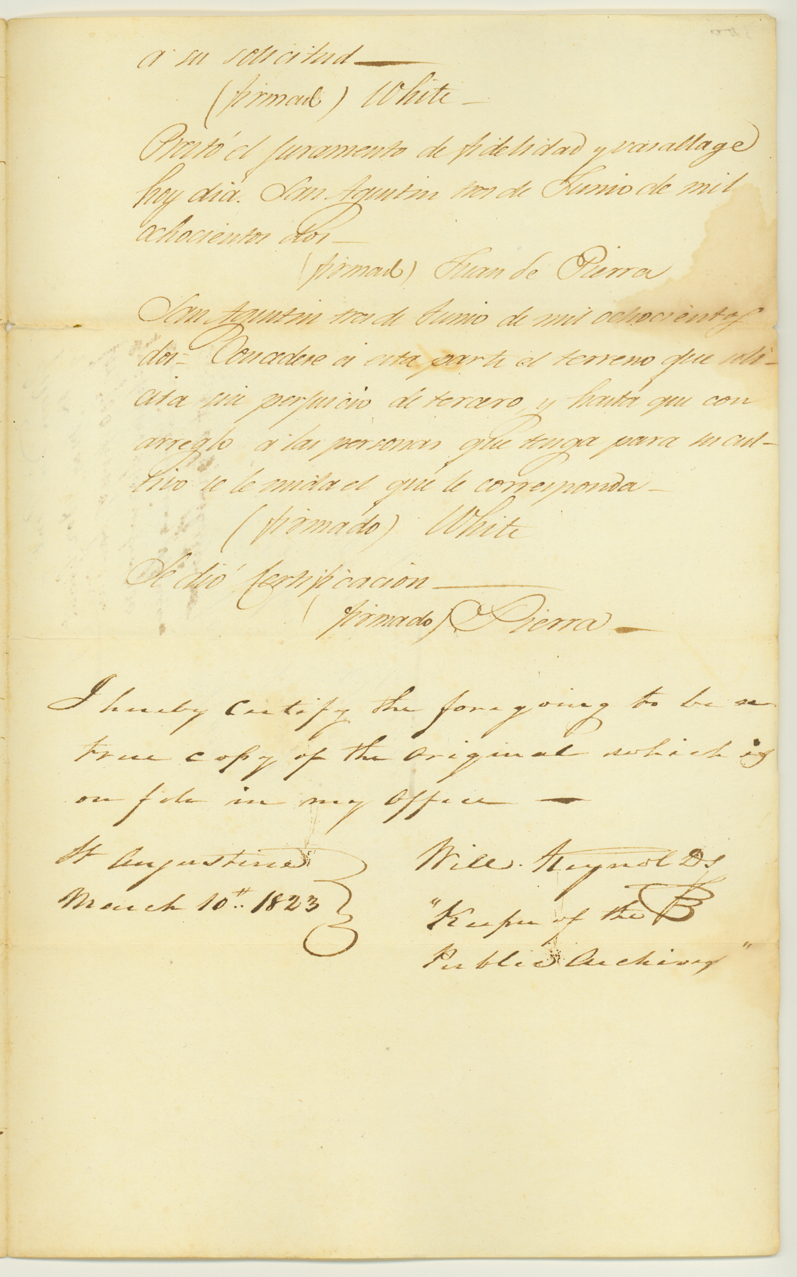 a su solicitud —
(firmad) White —
Prestó el juramento de fidelidad y vasallage
hoy dia. San Agustin tres de Junio de mil
ochocientos dos —
(firmad) Juan de Pierra
San Agustin tres de Junio de mil ochocientos
dos — Concedese á esta parte el terreno que soli-
cita sin perjuicio de tercero y hasta que con
arreglo a las personas que tenga para su cul-
tivo se le mida el que le corresponda —
(firmado) White
Se dió certificacion —
(firmado) Pierra —
I hereby certify the foregoing to be a
true copy of the original which is
on file in my office —
St Augustine
March 10th. 1823
Will. Reynolds
"Keeper of the
Public Archives"